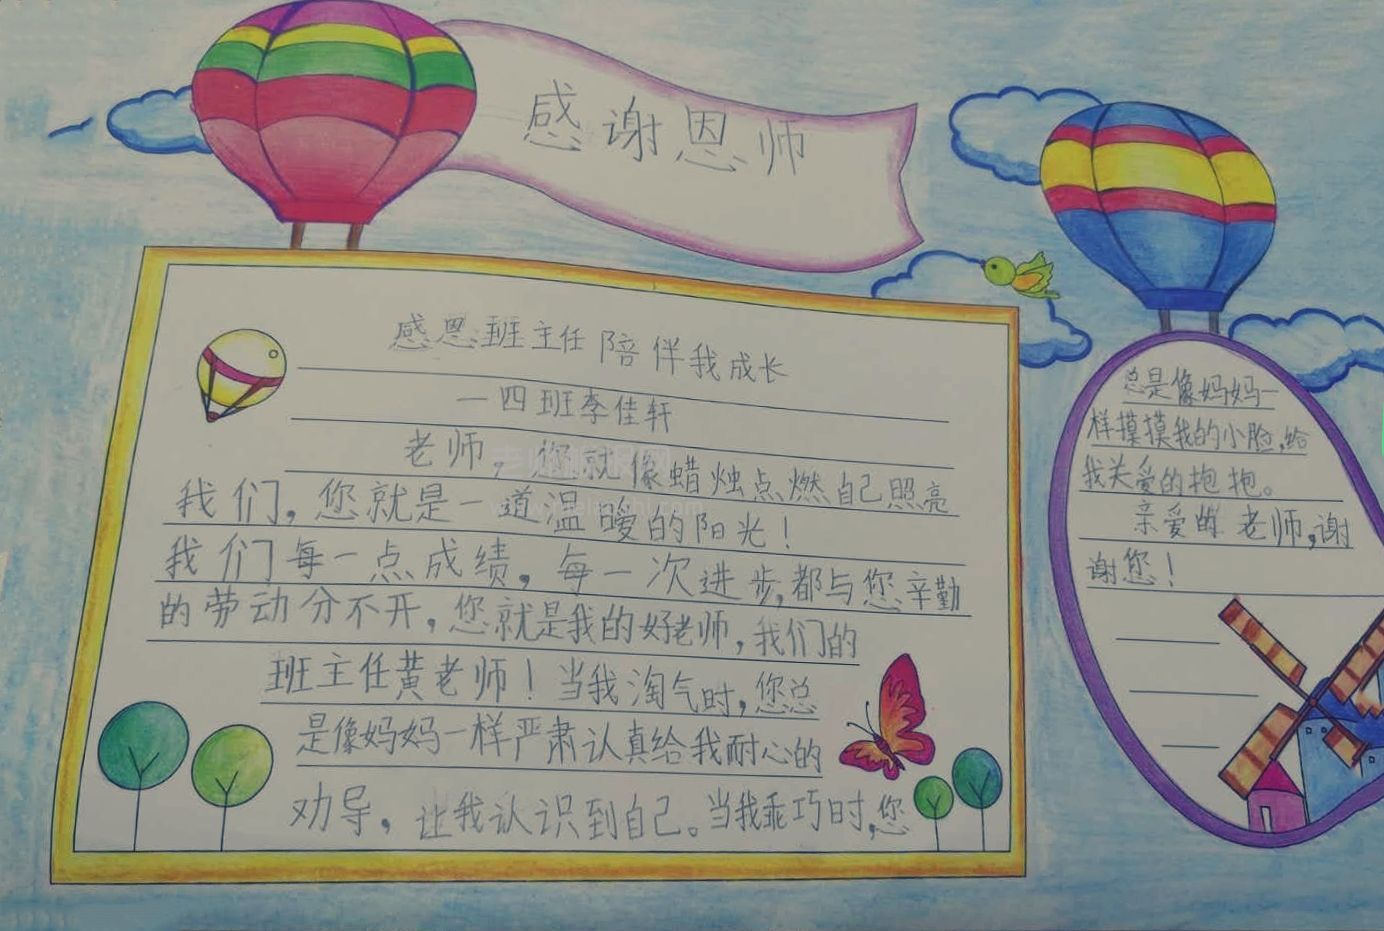 感谢恩师
感恩班主任陪伴我成长
一四班李佳轩
老师，您就像蜡烛点燃自己照亮
我们，您就是一道温暖的阳光！
我们每一点成绩，每一次进步，都与您辛勤
的劳动分不开，您就是我的好老师，我们的
班主任黄老师！当我淘气时，您总
是像妈妈一样严肃认真给我耐心的
劝导，让我认识到自己。当我乖巧时，您
总是像妈妈一
样摸摸我的小脸，给
我关爱的抱抱。
亲爱的老师，谢
谢您！